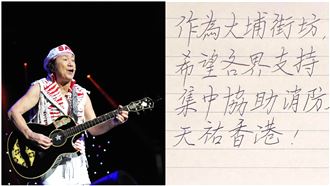 作為大埔街坊,
希望各界支持
集中協助消防
天祐香港!